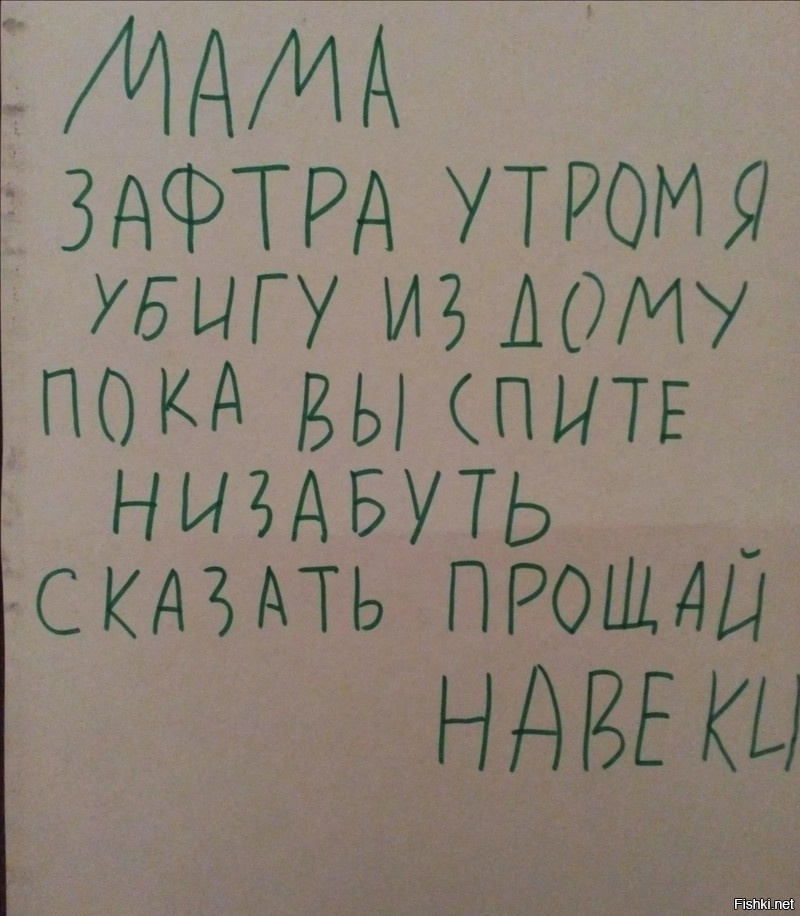 МАМА
ЗАФТРА УТРОМ Я
УБИГУ ИЗ ДОМУ
ПОКА ВЫ СПИТЕ
НИЗАБУТЬ
СКАЗАТЬ ПРОЩАЙ
НАВЕКИ
Fishki.net